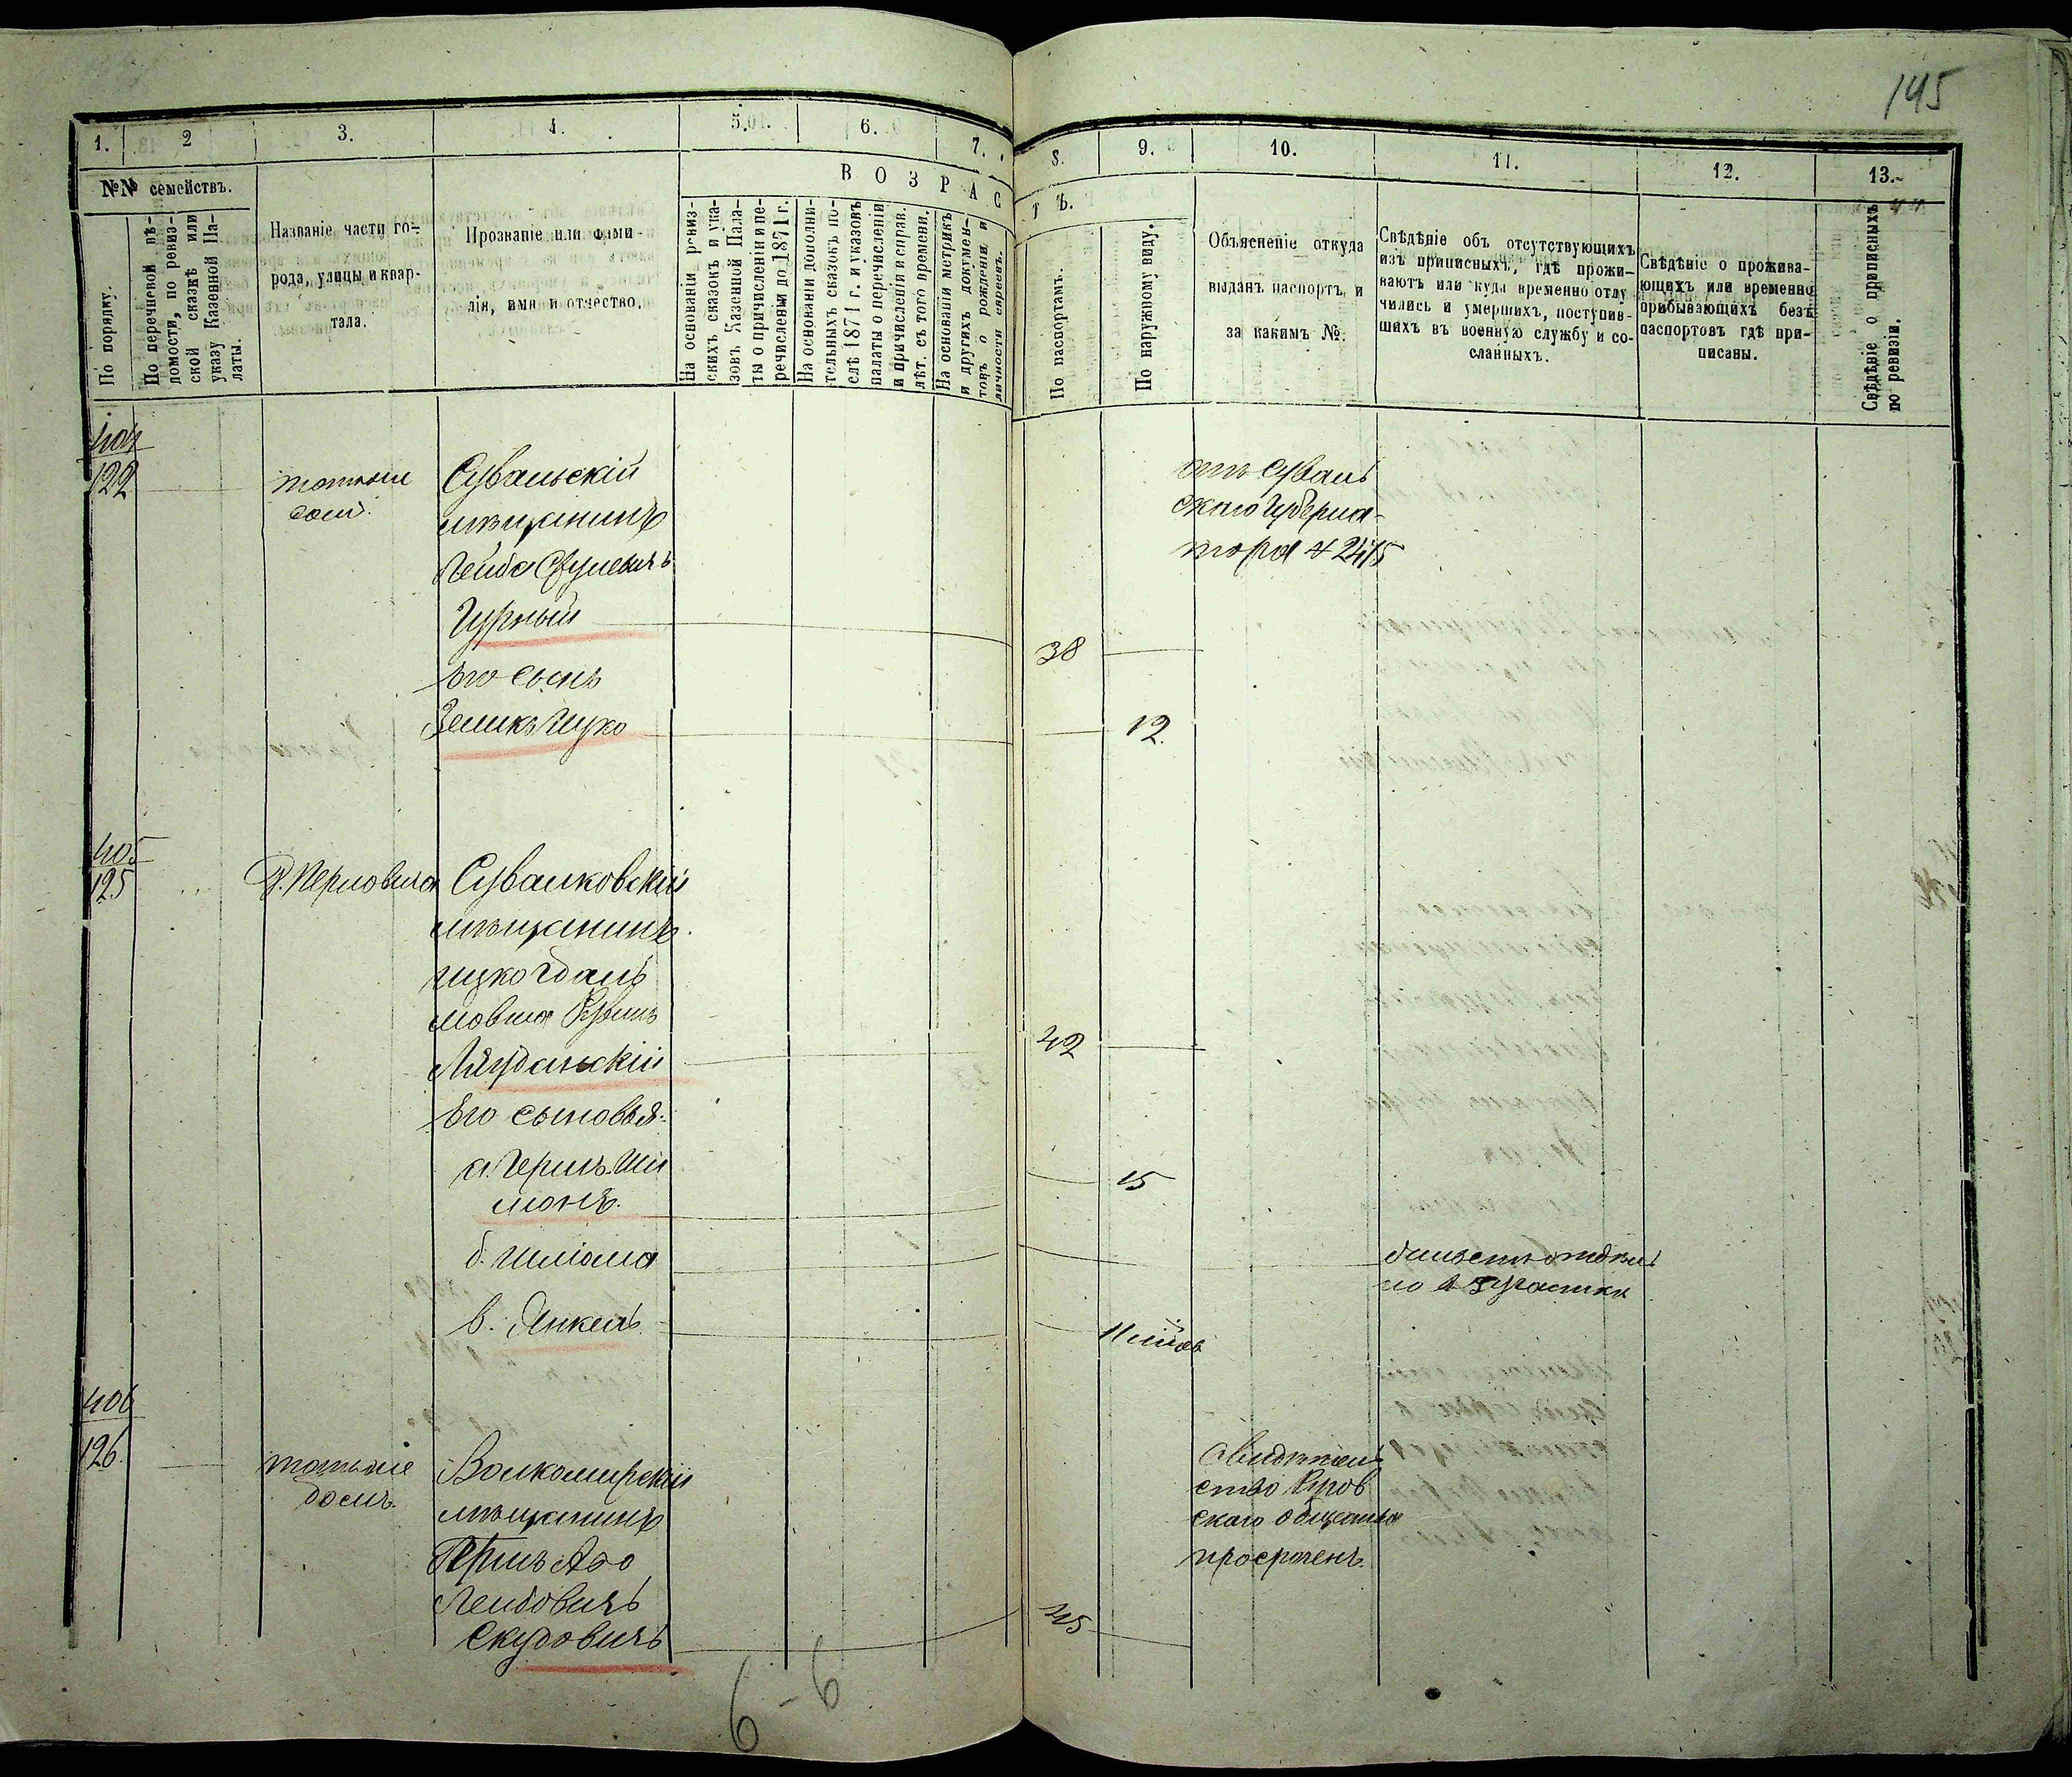 145
1.
2
3.
4.
5.
6.
7.
8.
9.
10.
11.
12.
13.
№№ семействъ.
По порядку.
По перечневой вѣ-
домости, по ревиз-
ской сказкѣ или
указу Казенной Па-
латы.
Названіе части го-
рода, улицы и квар-
тала.
Прозваніе или фами-
лія, имя и отчество.
ВОЗРАС
ТЪ.
На основаніи ревиз-
скихъ сказокъ и ука-
зовъ Казенной Пала-
ты о причисленіи и пе-
речисленіи до 1871 г.
На основаніи дополни-
тельныхъ сказокъ по-
слѣ 1871 г. и указовъ
палаты о перечисленіи
и причисленіи и справ.
лѣт. съ того времени.
На основаніи метрикъ
и другихъ докумен-
товъ о рожденіи и
личности евреевъ.
По паспортамъ.
По наружному виду.
Объясненіе откуда
выданъ паспортъ и
за какимъ №.
Свѣдѣніе объ отсутствующихъ
изъ приписныхъ, гдѣ прожи-
ваютъ или куда временно отлу
чились и умершихъ, поступив-
шихъ въ военную службу и со-
сланныхъ.
Свѣдѣніе о прожива-
ющихъ или временно
прибывающихъ безъ
паспортовъ гдѣ при-
писаны.
Свѣдѣніе о приписныхъ
по ревизіи.
404
122
томъже
дом.
Сувальскій
мѣщанинъ
Лейба
Гурный
38
Его сынъ
Зеликъ Ицко
12.
отъ Суваль
скаго Губерна-
тора № 2475
405
125
Д. Перловича
Сувалковскій
мѣщанинъ
Ицко Гдаль
Мовша
42
Его сыновья:
а. Гершъ Ши
монъ.
15
б. Шліома
в. Янкель
406
126.
томъже
домѣ.
Волкомирскій
мѣщанинъ
Гершъ
Лейбовичъ
Скудовичъ
45
Свидѣтель
ство
скаго общества
просроченъ.
6-6